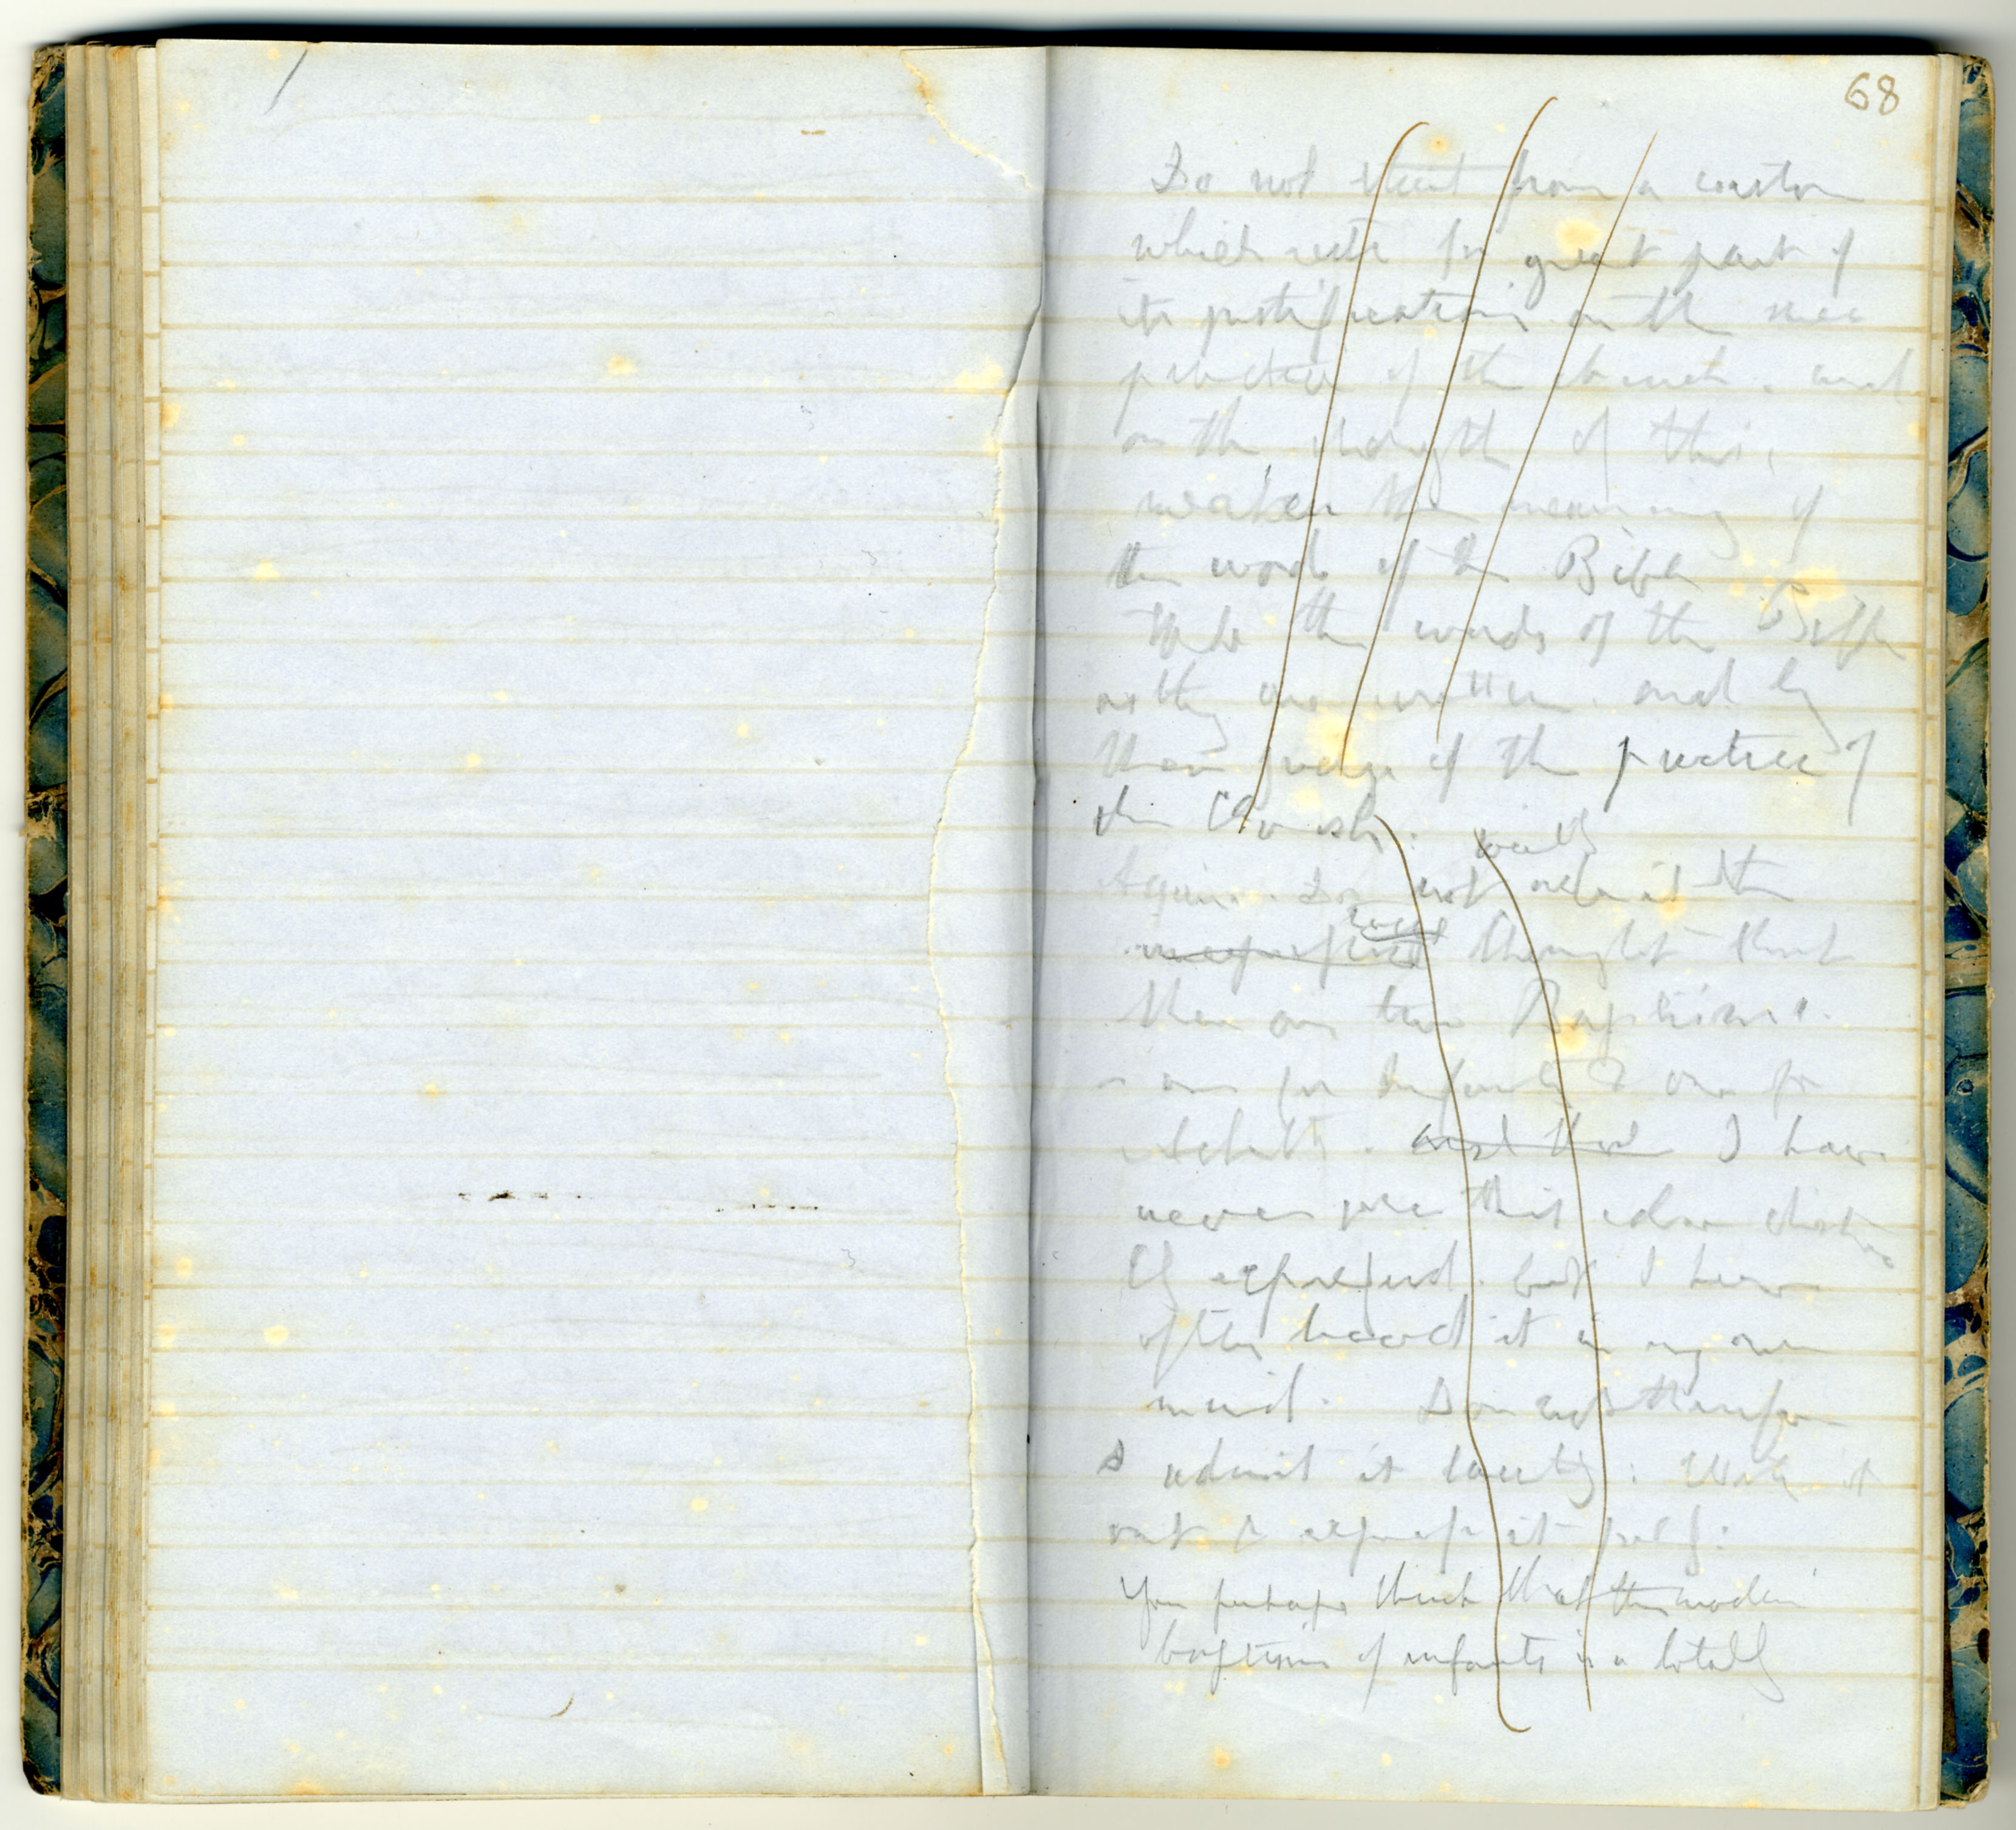 68
Do not start from a custom
which rests for great part of
its justification on the mere
practice of the church, and
on the strength of this,
weaken the meaning of
the words of the Bible
Take the words of the Bible
as they are written. and by
them judge of the practice of
the Church.
Again. Do not admit the
thought that
there are two Baptisms.
one for Infants & one for
Adults. and that I have
never seen this idea distinct
ly expressed. but I have
often traced it in my own
mind. Do not therefore
admit it tacitly: Work it
out & express it fully:
You perhaps think that the modern
baptism of infants is a totally